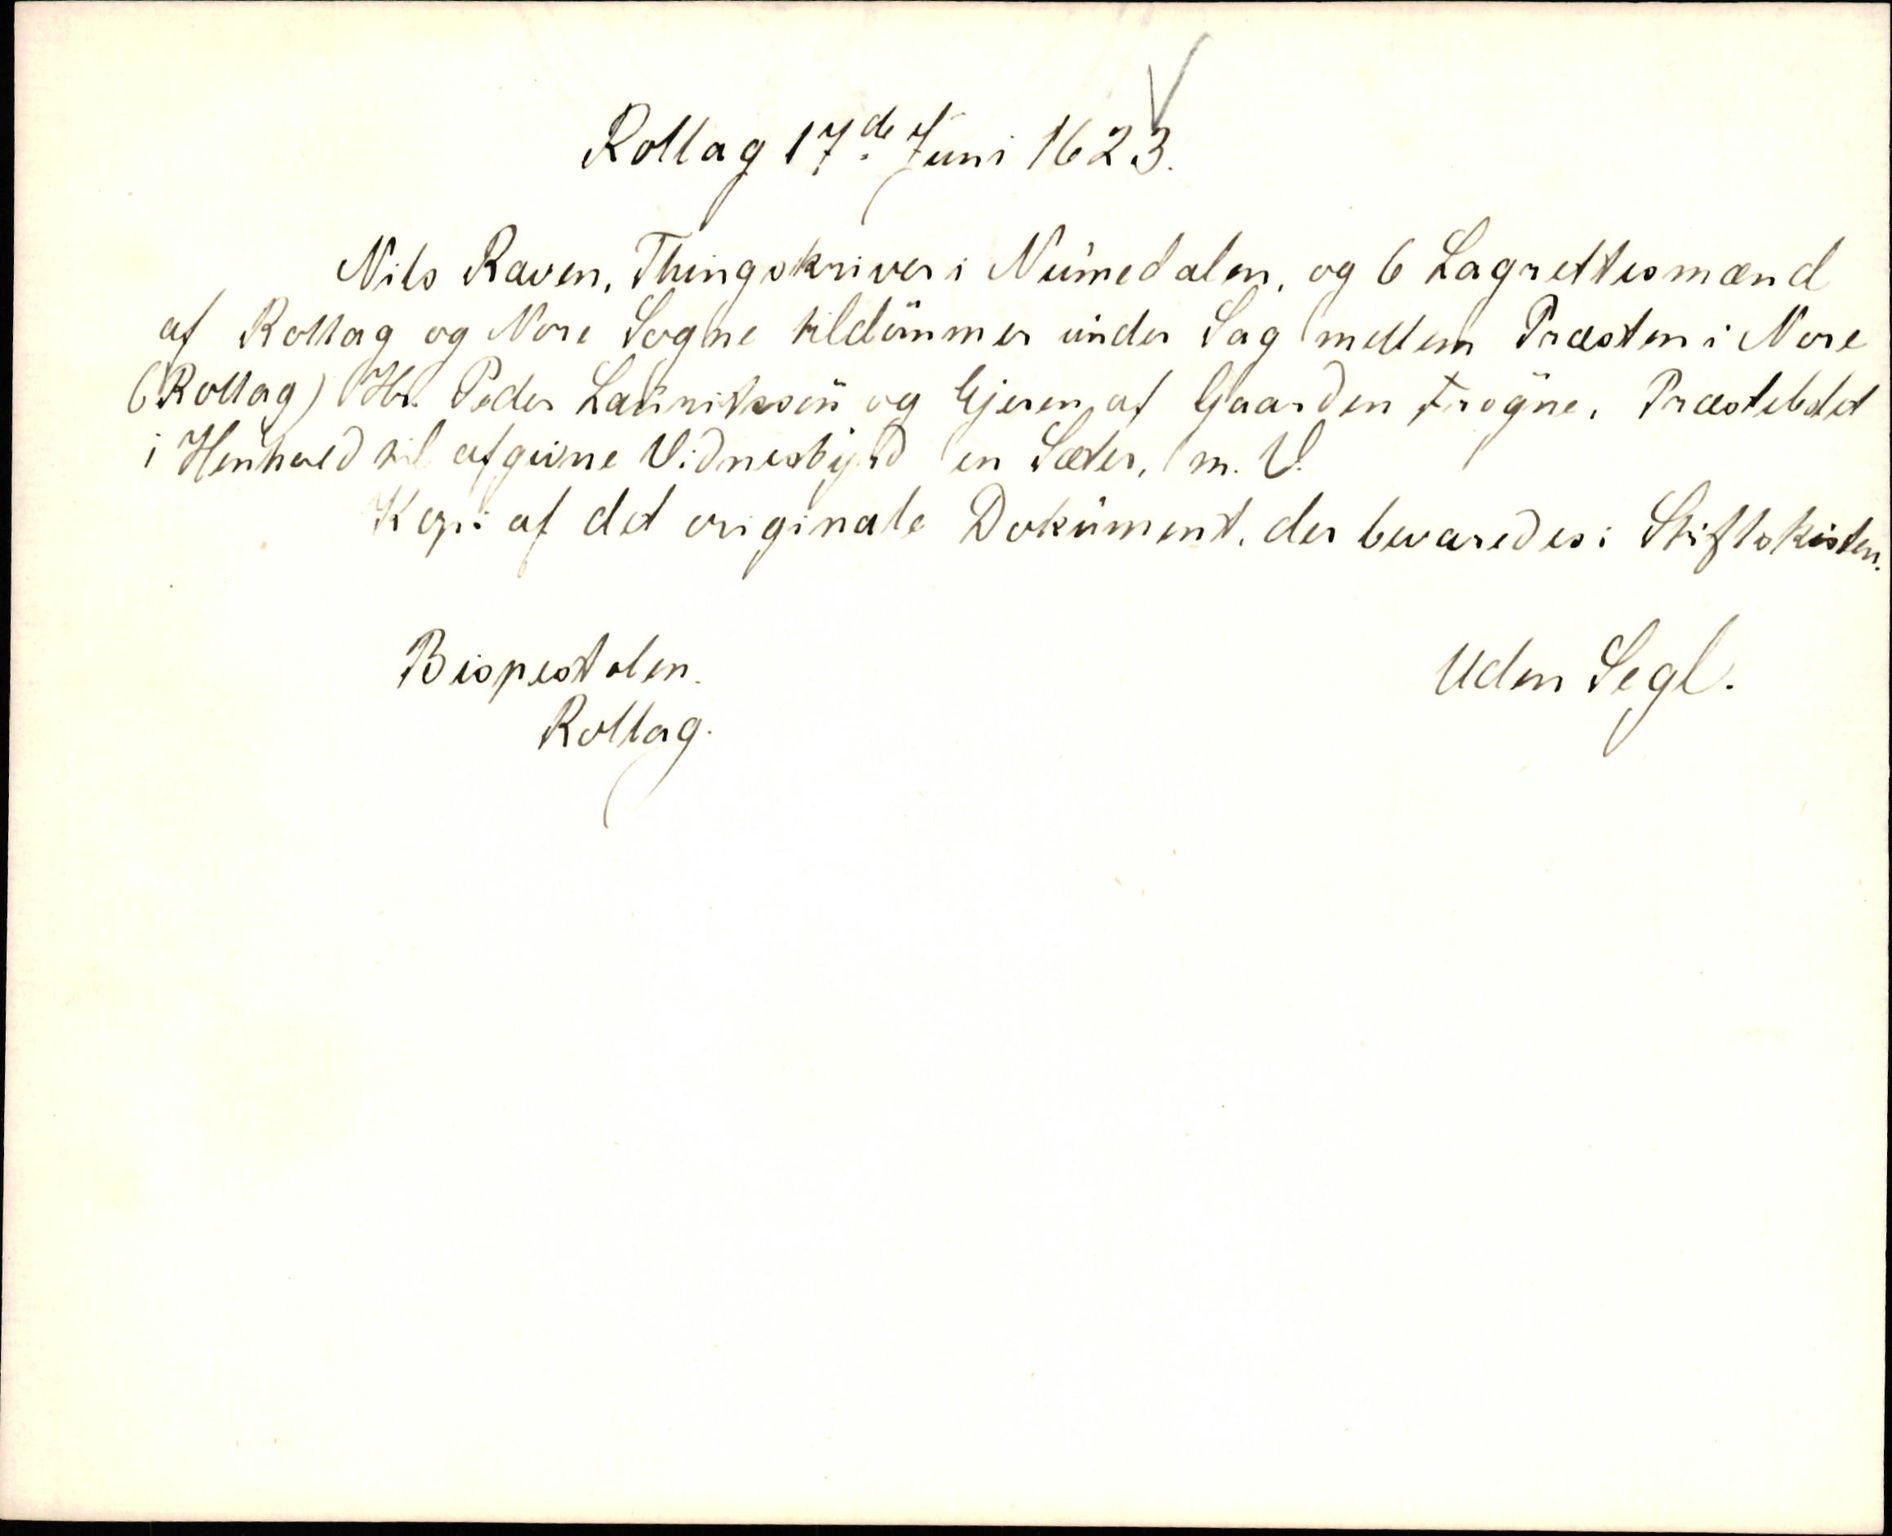 Rollag 17de Juni 1623.
Nils Raven, Thingskriver i Numedalen, og 6 Lagrettesmænd
af Rollag og Nore Sogne tildømmer under Sag mellem Præsten i Nore
(Rollag) Hr. Peder Lauritssøn og Ejeren af Gaarden Frogne, Præstebolet
i Henhold til afgivne Vidnesbyrd en Sæter, m. V.
Kopi af det originale Dokument, der bevaredes i Stiftskisten.
Bispestolen.
Uden Segl.
Rollag.